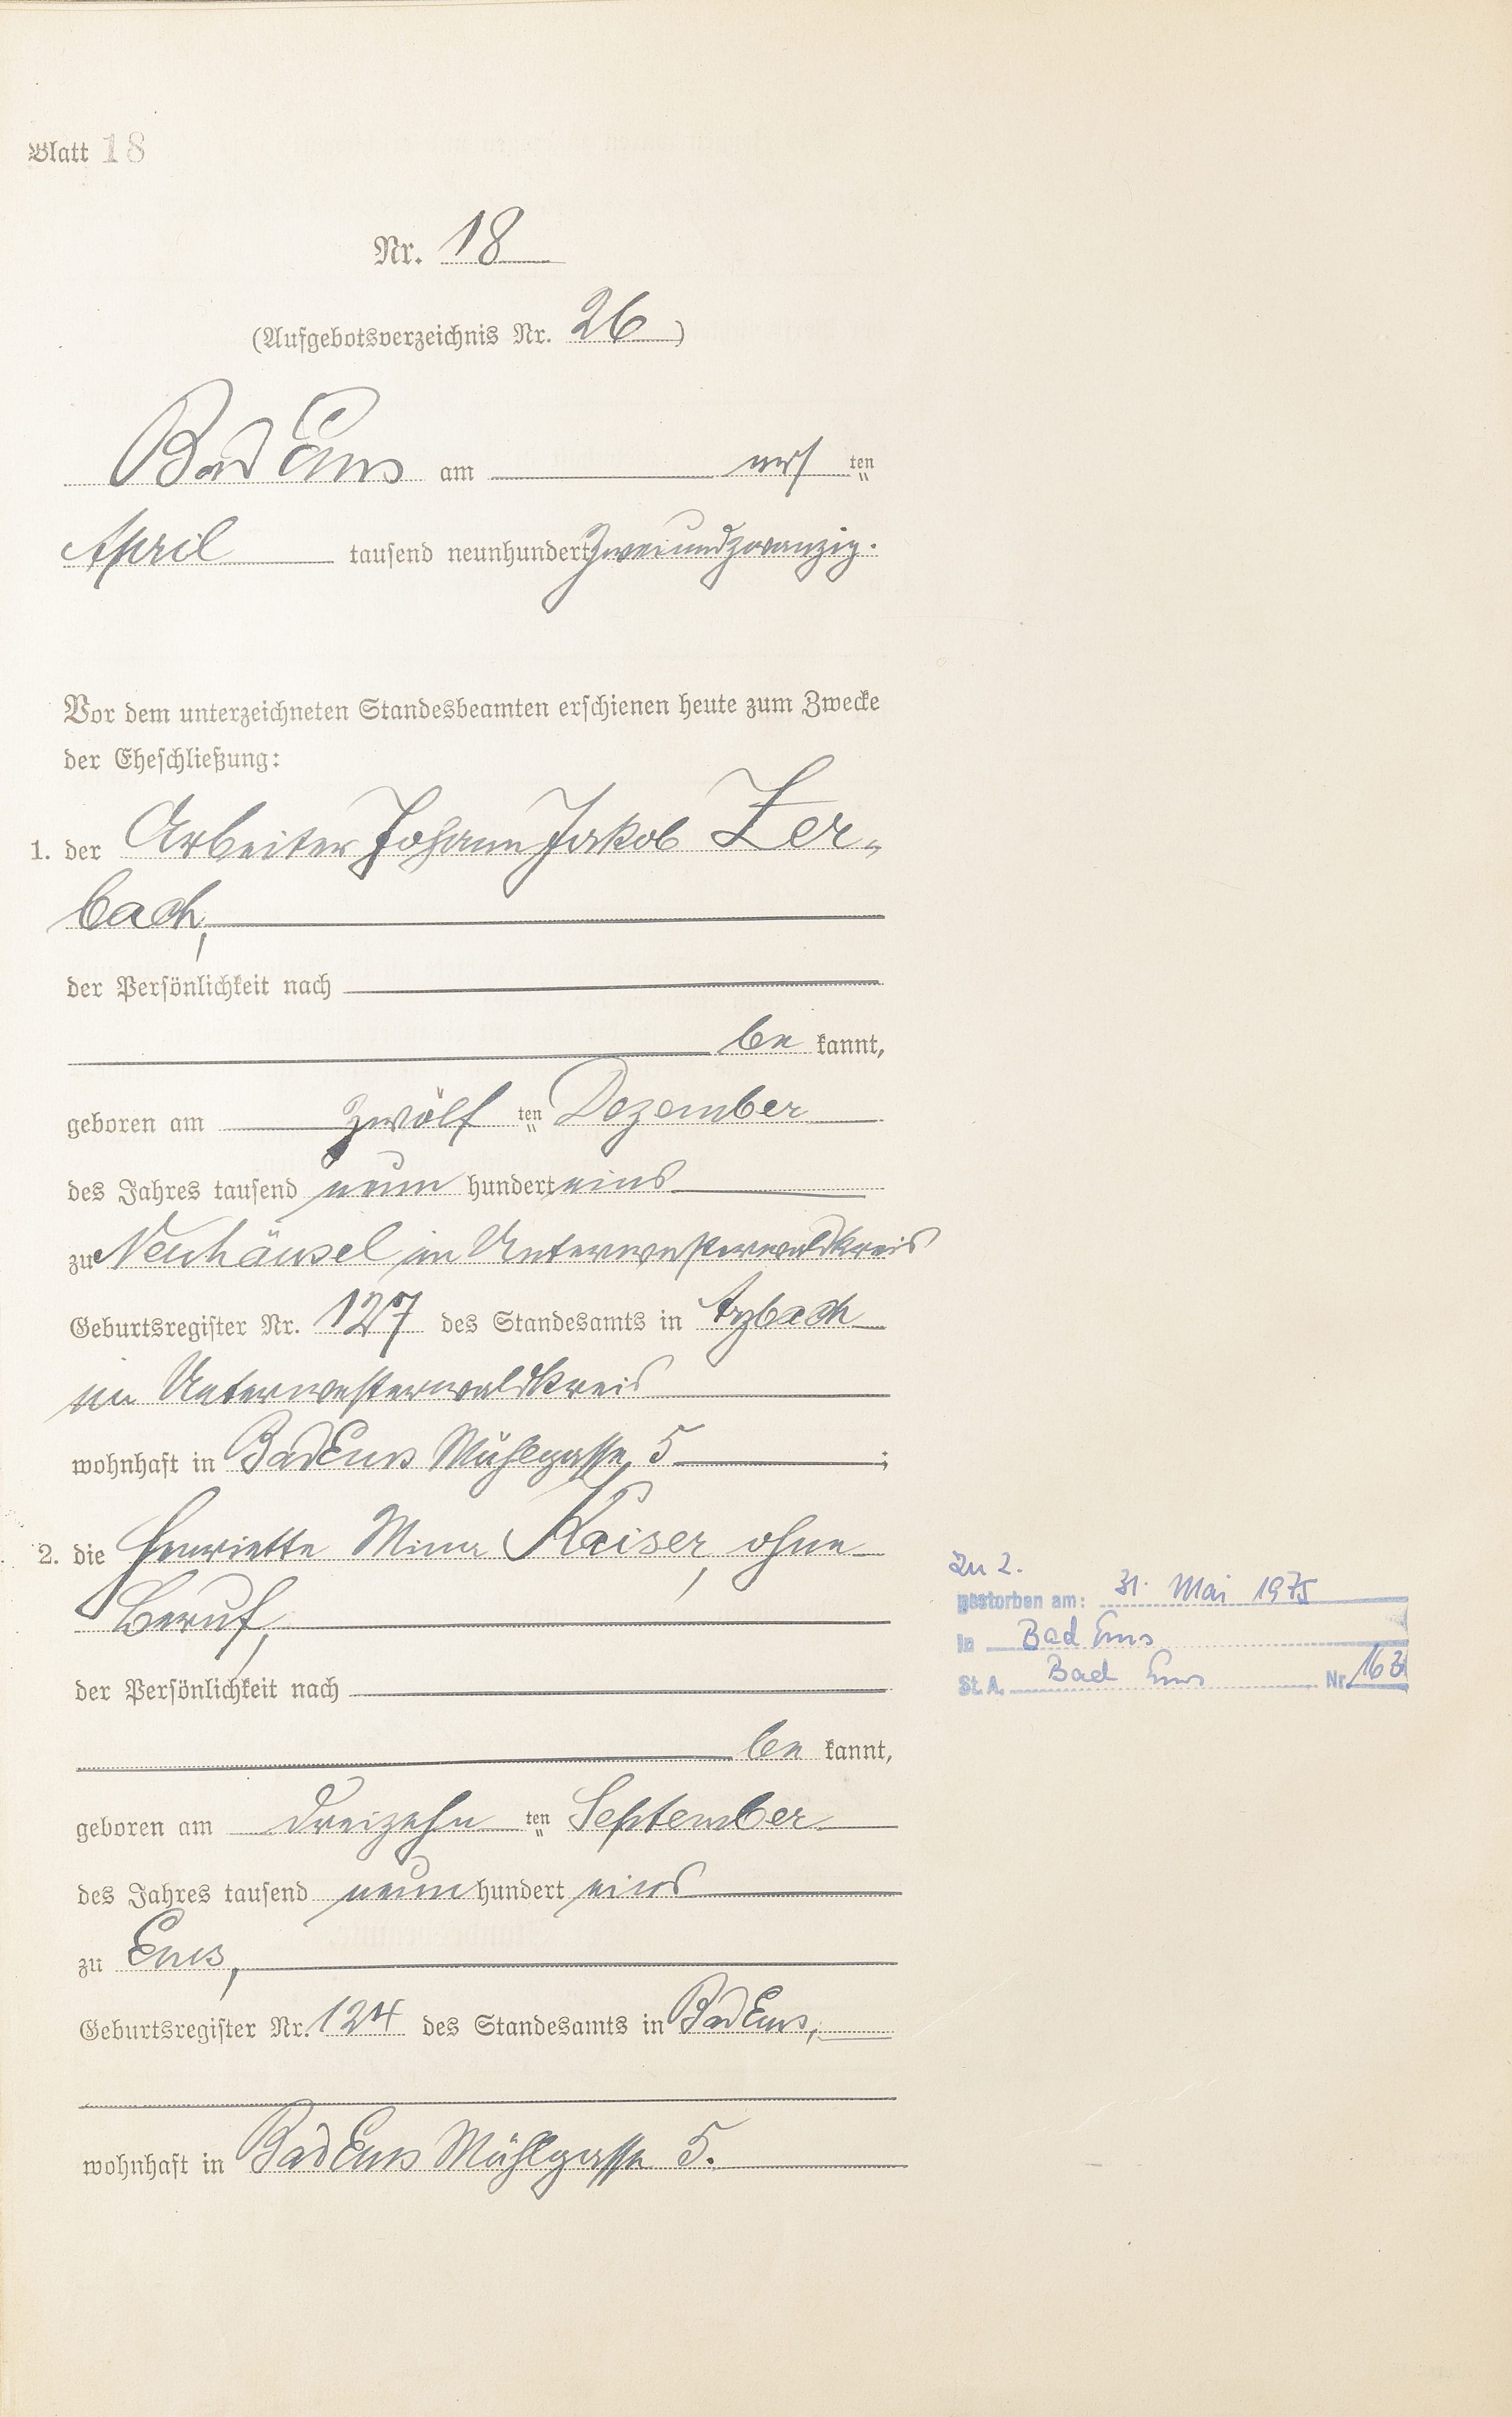 Blatt 18
Nr. 18
(Aufgebotsverzeichnis Nr. 26)
Bad Ems am ersten
April tausend neunhundert zweiundzwanzig.
Vor dem unterzeichneten Standesbeamten erschienen heute zum Zwecke
der Eheschließung:
1. der Arbeiter Johann Jakob Zer-
bach,
der Persönlichkeit nach
be kannt,
geboren am zwölf ten Dezember
des Jahres tausend neun hundert eins
zu Neuhäusel im Unterwesterwaldkreis
Geburtsregister Nr. 127 des Standesamts in
im Unterwesterwaldkreis
wohnhaft in Bad Ems Mühlgasse 5 ;
2. die Henriette Mina Kaiser, ohne
Beruf,
der Persönlichkeit nach
be kannt,
geboren am dreizehn ten September
des Jahres tausend neun hundert eins
zu Ems,
Geburtsregister Nr. 124 des Standesamts in Bad Ems,
wohnhaft in Bad Ems Mühlgasse 5.
Zu 2.
gestorben am: 31. Mai 1975
in Bad Ems
St. A. Bad Ems Nr. 163